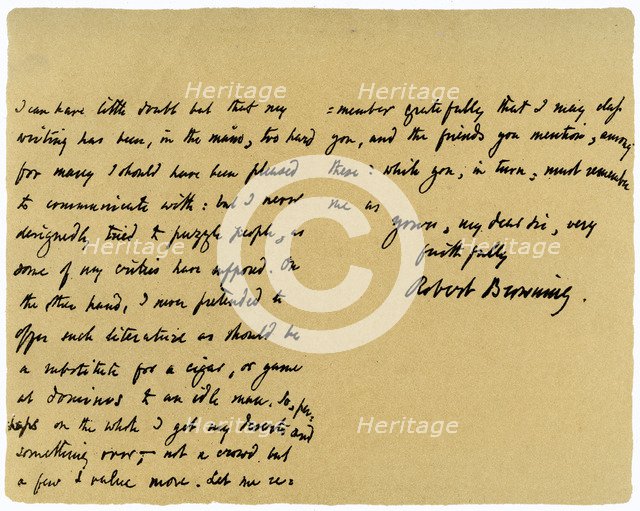 I can have little doubt but that my
writing has been, in the main, too hard
for many I should have been pleased
to communicate with: but I never
designedly tried to puzzle people, as
some of my critics have supposed. On
the other hand, I never pretended to
offer such literature as should be
a substitute for a cigar, or game
at dominos to an idle man. So, per-
haps on the whole I get my deserts and
something over — not a crowd but
a few I value more. Let me re=
=member gratefully that I may class
you, and the friends you mention, among
these: while you, in turn, must remember
me as
yours, my dear Sir, very
faithfully
Robert Browning.
Heritage
Heritage
Heritage
Heritage
Heritage
Heritage
C